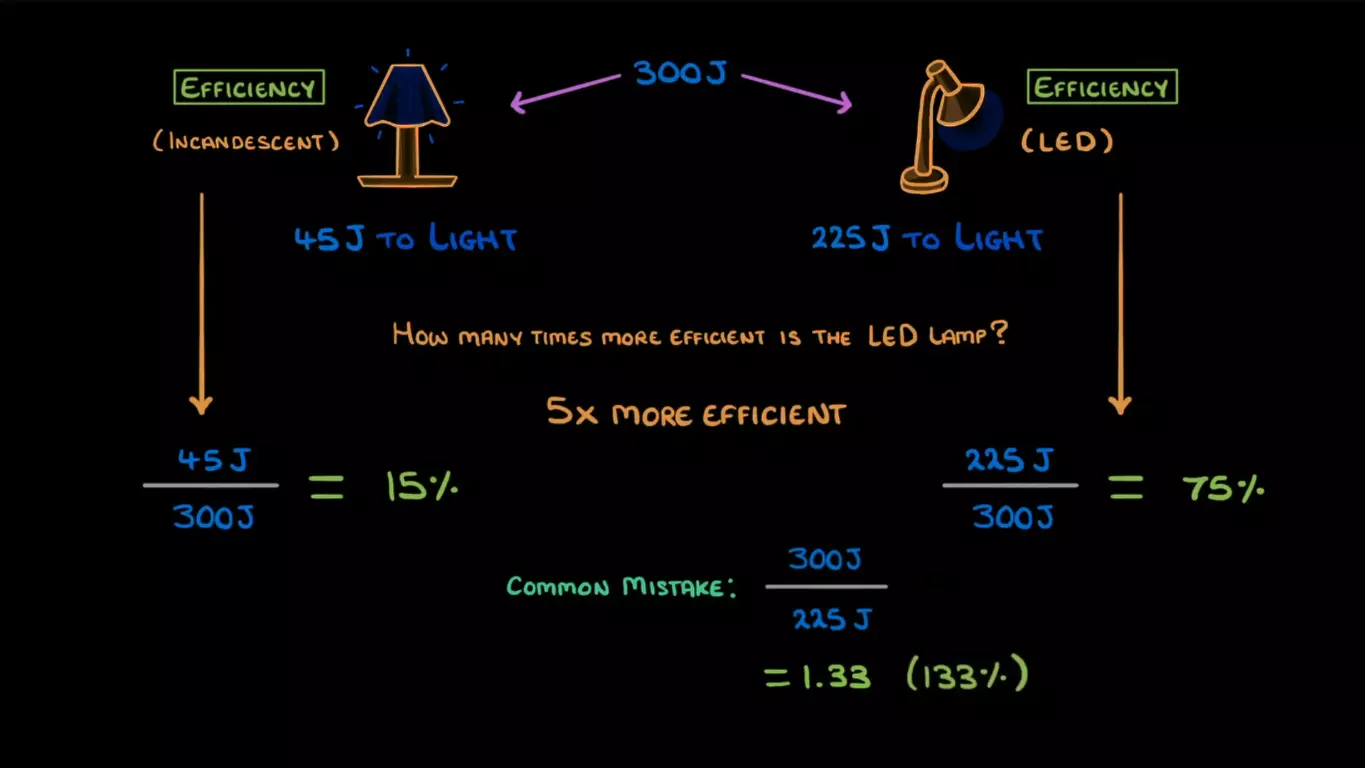 EFFICIENCY
(INCANDESCENT)
300J
EFFICIENCY
(LED)
45J TO LIGHT
225J TO LIGHT
HOW MANY TIMES MORE EFFICIENT IS THE LED LAMP?
5X MORE EFFICIENT
45J
300J
= 15%
225J
300J
= 75%
COMMON MISTAKE:
300J
225J
= 1.33 (133%)